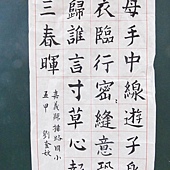 母手中線遊子身
衣臨行密々縫意恐
歸誰言寸草心報
三春暉
嘉義 國小
五甲 劉